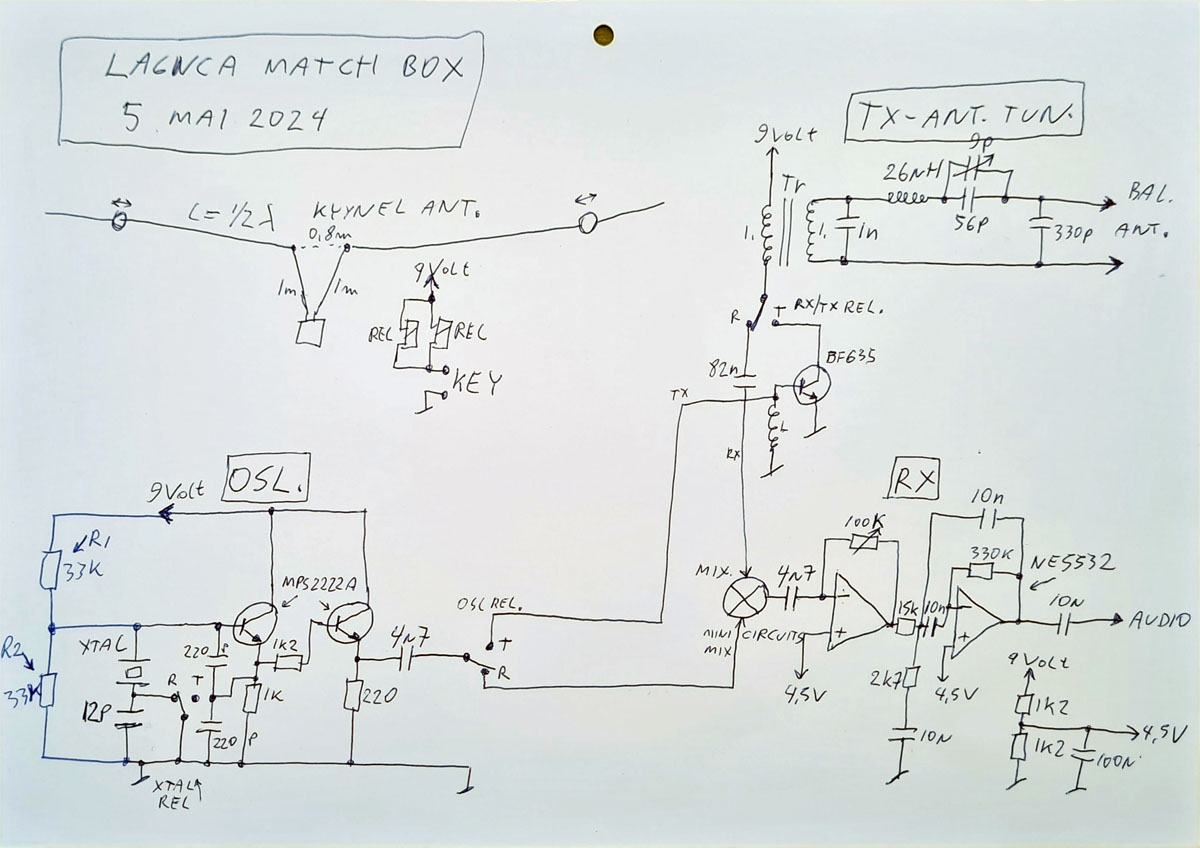 LA6NCA MATCH BOX
5 MAI 2024
TX-ANT. TUN.
9Volt
Tr
26nH
9p
56p
1n
330p
BAL.
ANT.
L=1/2 λ
KEYNEL ANT.
0,8m
1m
1m
9Volt
REL
REL
KEY
R
T
RX/TX REL.
82n
TX
RX
L
9Volt
OSL.
R1
33K
R2
33K
XTAL
12P
R
T
220
P
220
P
XTAL
REL
MPS2222A
1K2
1K
220
4n7
OSL REL.
T
R
RX
MIX.
MINI CIRCUITS
MIX
4n7
100K
4,5V
15K
10n
2K7
10N
10n
330K
NE5532
4,5V
10N
AUDIO
9Volt
1K2
1K2
4,5V
100N